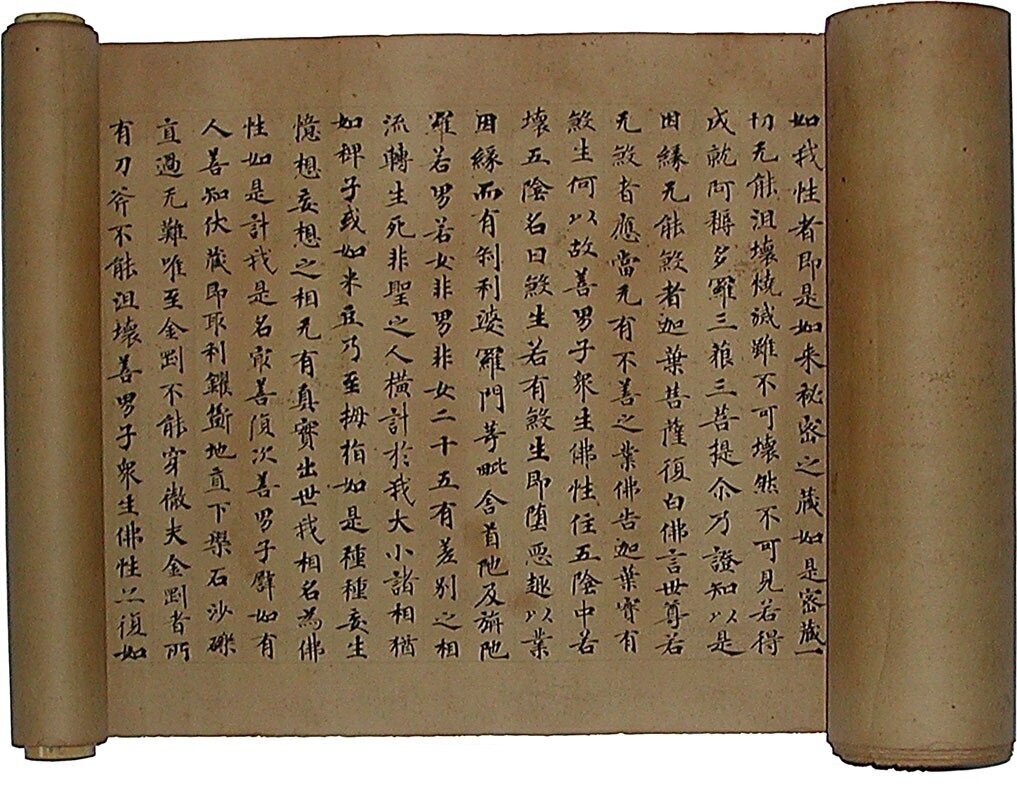 如我性者即是如来秘密之蔵如是密蔵一
切无能沮壊焼滅雖不可壊然不可見若得
成就阿耨多羅三藐三菩提尒乃證知以是
因縁无能煞者迦葉菩薩復白佛言世尊若
无煞者應當无有不善之業佛告迦葉實有
煞生何以故善男子衆生佛性住五陰中若
壊五陰名曰煞生若有煞生即堕惡趣以業
因縁而有刹利婆羅門等毗舍首陁及旃陁
羅若男若女非男非女二十五有差別之相
流轉生死非聖之人横計於我大小諸相猶
如稗子或如米豆乃至拇指如是種種妄生
憶想妄想之相无有真實出世我相名為佛
性如是計我是名㝡善復次善男子譬如有
人善知伏蔵即取利钁斵地直下槃石沙礫
直過无難唯至金剛不能穿徹夫金剛者所
有刀斧不能沮壊善男子衆生佛性亦復如